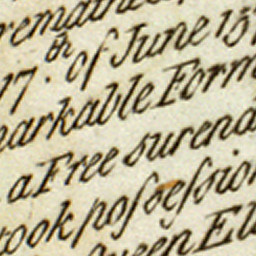 remaine
17.th of June 15
markable Form
a Free surend
took poſseſsion
Queen El